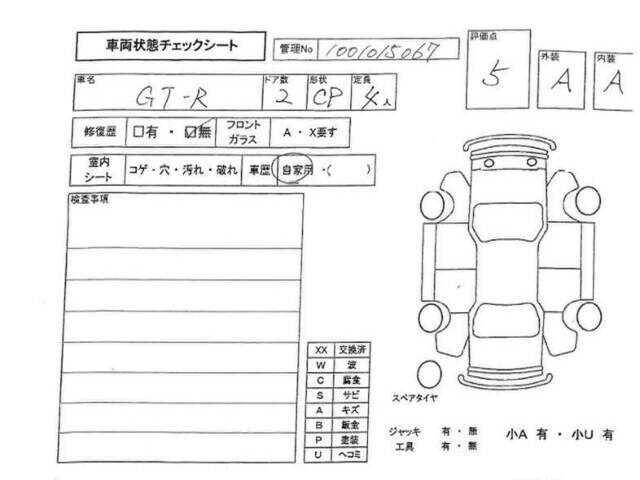 車両状態チェックシート 管理No 1001015067
評価点 5 外装 A 内装 A
車名 GT-R ドア数 2 形状 CP 定員 4人
修復歴 □有・☑無 フロントガラス A・X要す
室内シート コゲ・穴・汚れ・破れ 車歴 自家用・( )
検査事項
XX 交換済
W 波
C 腐食
S サビ
A キズ
B 鈑金
P 塗装
U ヘコミ
スペアタイヤ
ジャッキ 有・無
工具 有・無
小A 有・小U 有